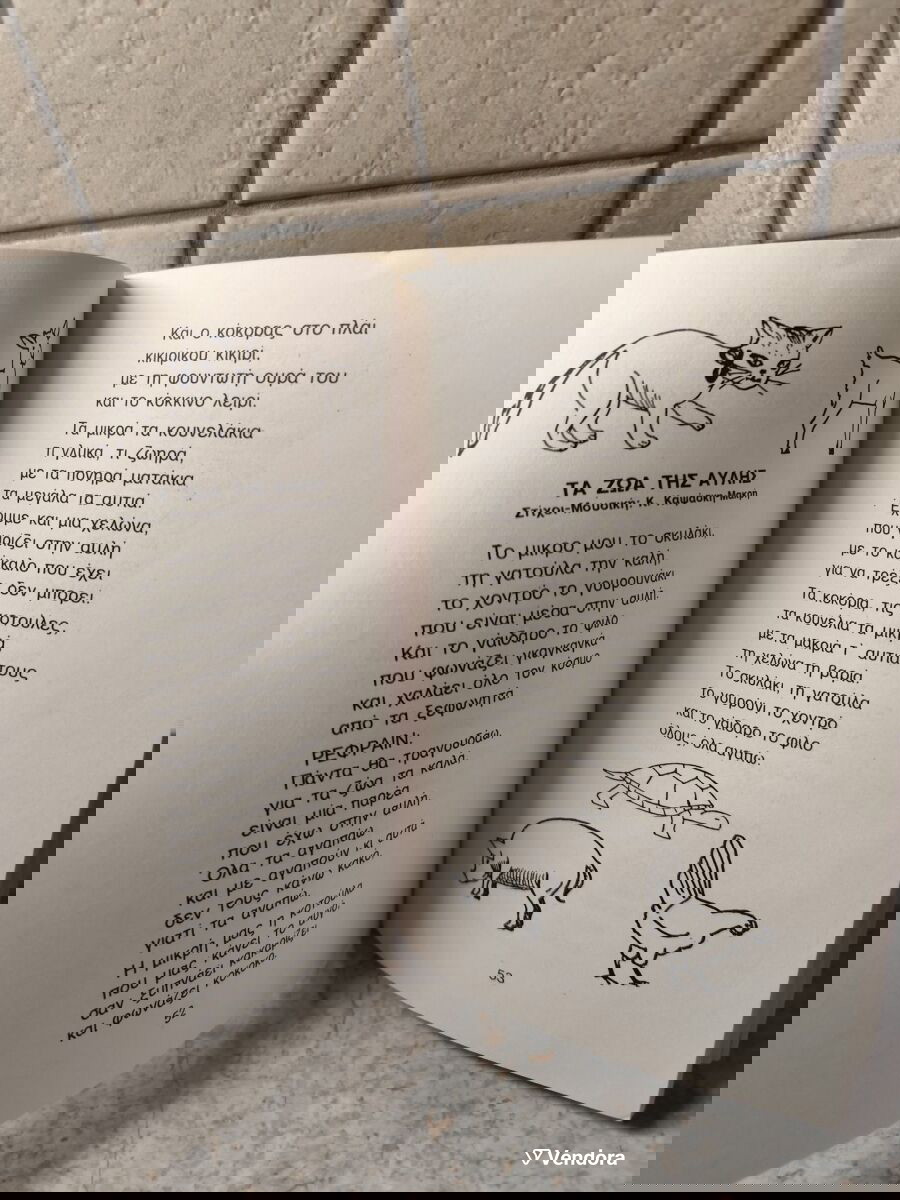 Και ο κόκορας στο πλάι
κικιρίκου κικιρί,
με τη φουντωτή ουρά του
και το κόκκινο λειρί.
Τα μικρά τα κουνελάκια
τι γλυκά, τι ζωηρά,
με τα πονηρά ματάκια
τα μεγάλα τα αυτιά.
Έχουμε και μια χελώνα,
που στην αυλή
με το που έχει
για να τρέξει δεν μπορεί.
Τα κοκόρια, τις κοτούλες,
τα κουνέλια τα μικρά
με τα μακριά τ' αυτιά τους
τη χελώνα τη βαριά.
Το σκυλάκι, τη γατούλα
το γουρούνι το χοντρό
και το γάιδαρο το φίλο
όλους όλα αγαπώ.
52
ΤΑ ΖΩΑ ΤΗΣ ΑΥΛΗΣ
Στίχοι-Μουσική: Κ. Καψάσκη-Μακρή
Το μικρό μου το σκυλάκι,
τη γατούλα την καλή,
το χοντρό το γουρουνάκι
που είναι μέσα στην αυλή.
Και το γάιδαρο το φίλο
που φωνάζει γκαγκαγκά
και χαλάει όλο τον κόσμο
από τα ξεφωνητά.
ΡΕΦΡΑΙΝ:
Πάντα θα τραγουδάω,
για τα ζώα τα καλά,
είναι μια παρέα
που έχω στην αυλή.
Όλα τα αγαπάω
και με αγαπούν κι αυτά
δεν τους κάνω κακό,
γιατί τα αγαπώ.
Η μικρή μας η κοτούλα
σαν ξυπνάει κακαρίζει
και φωνάζει
53
Vendora